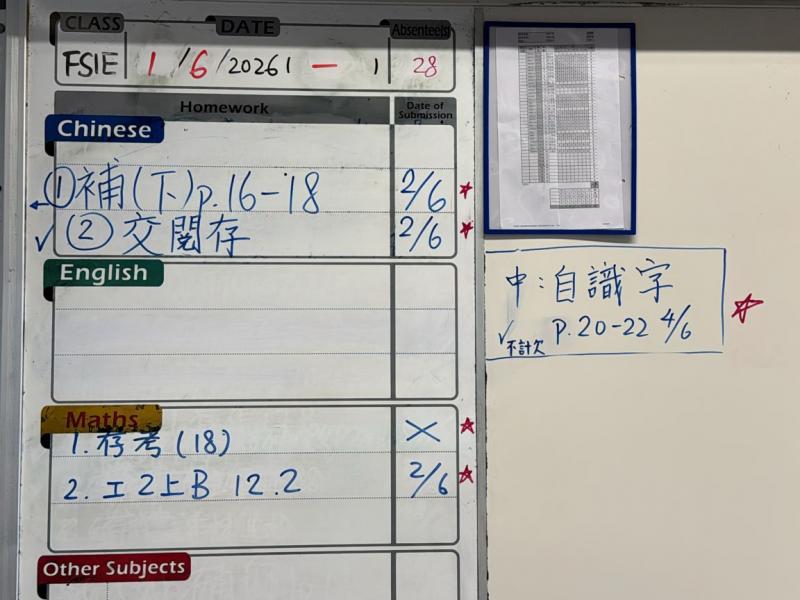 CLASS DATE Absentee(s)
FSIE 1/6/2026 1 — 1 28
Homework Date of Submission
Chinese
① 補(下)p.16-18 2/6
② 交閱存 2/6
English
Maths
1. 存考(18) ×
2. 工2上B 12.2 2/6
Other Subjects
中:自識字
不計欠 P.20-22 4/6